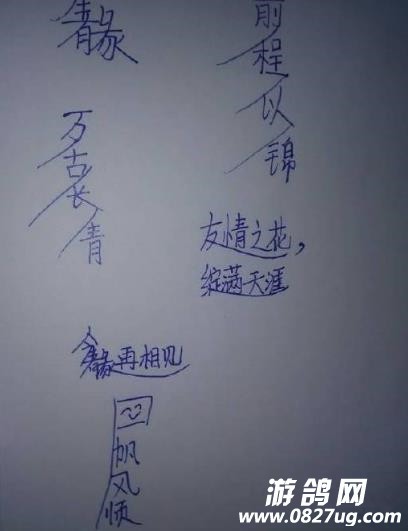 前程似锦
万古长青
友情之花，
绽满天涯
缘再相见
帆风顺
游鸽网
www.0827ug.com